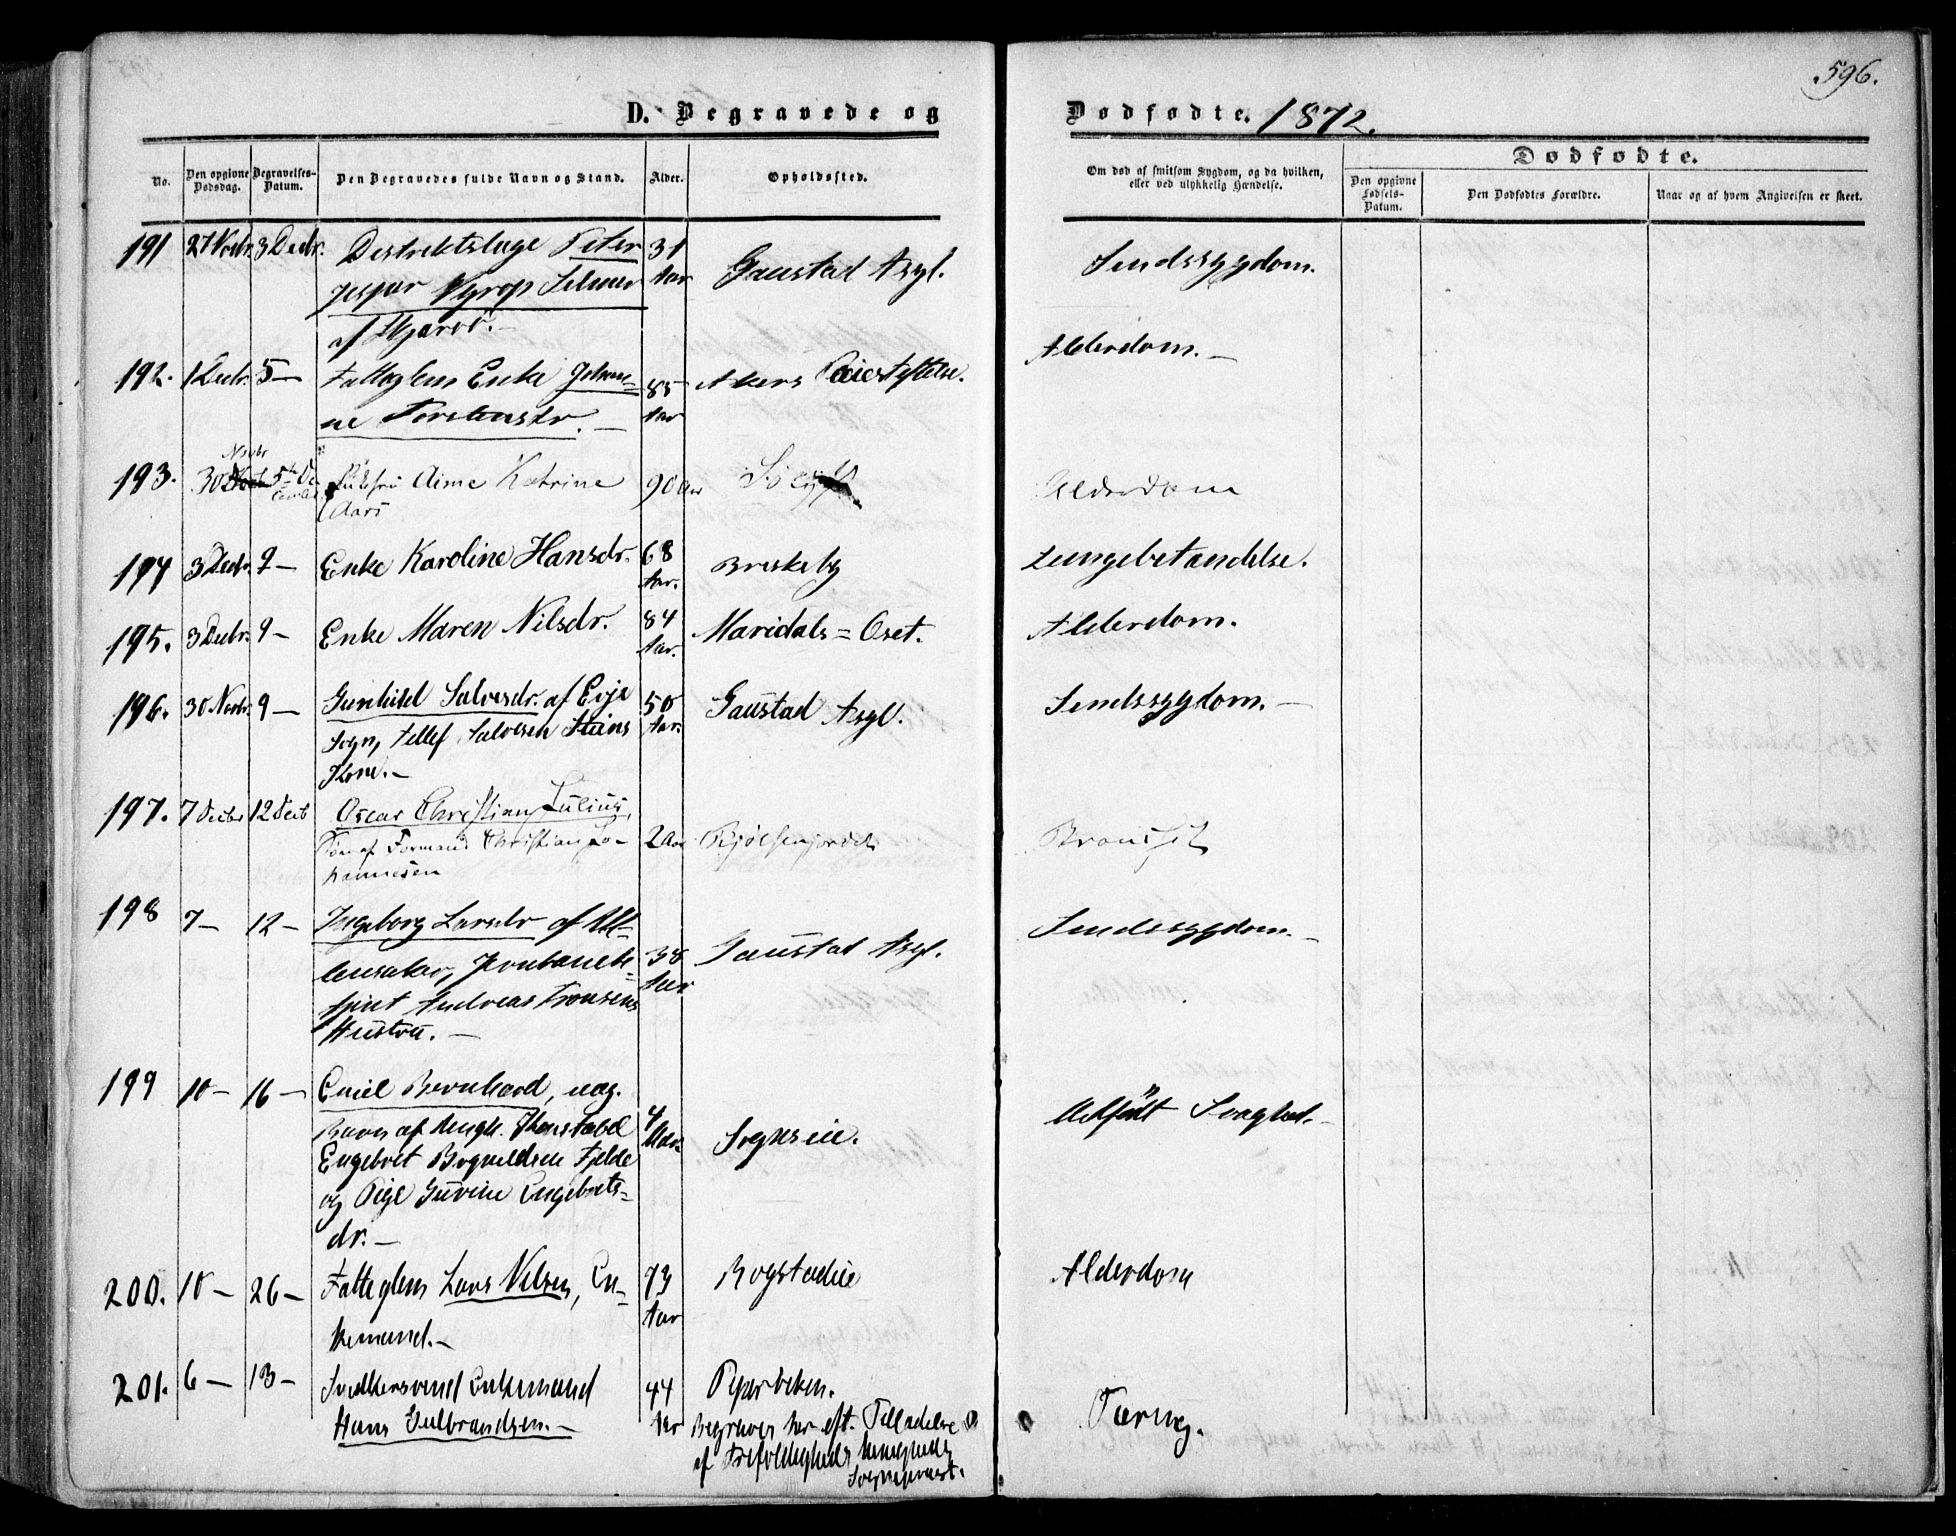 596.
D. Begravede og Dødfødte. 1872.
No.
Den opgivne Dødsdag.
Begravelses-Datum.
Den Begravedes fulde Navn og Stand.
Alder.
Opholdssted.
Om død af smitsom Sygdom, og da hvilken, eller ved ulykkelig Hændelse.
Dødfødte.
Den opgivne Fødsels-Datum.
Den Dødfødtes Forældre.
Naar og af hvem Angivelsen er skeet.
191 27 Novbr. 3 Decbr. Distriktslæge Peter 31 Aar Gaustad Asyl. Sindssygdom.
Jesper Nyrop Selmer
af
192. 1 Decbr. 5 — Fattiglem Enke Johan= 85 Aar Akers Pleiestiftelse. Alderdom. —
ne Torstensdr. —
193. 30 Novbr 5te De cember Aime Katrine 90 Aar Alderdom
Aars
194 3 Decbr. 9 — Enke Karoline Hansdr. 68 Aar. Briskeby Lungebetændelse.
195. 3 Decbr. 9 — Enke Maren Nilsdr. 84 Aar. Maridals=Oset. Alderdom.
196. 30 Novbr. 9 — Gunhild Salvesdr. af Evje 50 Aar. Gaustad Asyl. Sindssygdom. —
Sogn, Tellef Salvesen Steins
Kone. —
197. 7 Decbr 12 Decb Oscar Christian Julius, 2 Aar Bjølsenjordet
Søn af Formand Christian Jo-
hannesen
198 7 — 12 — Ingeborg Larsdr af Ul= 38 Aar Gaustad Asyl. Sindssygdom. —
lensaker, Jernbanebe=
tjent Andreas Tronsens
Hustru. —
199 10 — 16 — Emil Bernhard, uæg. 4 Sognseie. Medfødt Svaghed. —
Barn af Ungk. Konstabel
Engebret Fjelde
og Pige Gurine Engebrets=
dr. —
200. 10 — 26 — Fattiglem Lars Nilsen, En= 73 Aar Bogstadeie Alderdom
kemand. —
201. 6 — 13 — Snedkersvend Enkemand 44 Aar Piperviken. Tæring.
Hans Gulbrandsen. —
Begraves her eft. Tilladelse
af Trefoldigheds Menigheds
Sognepræst.